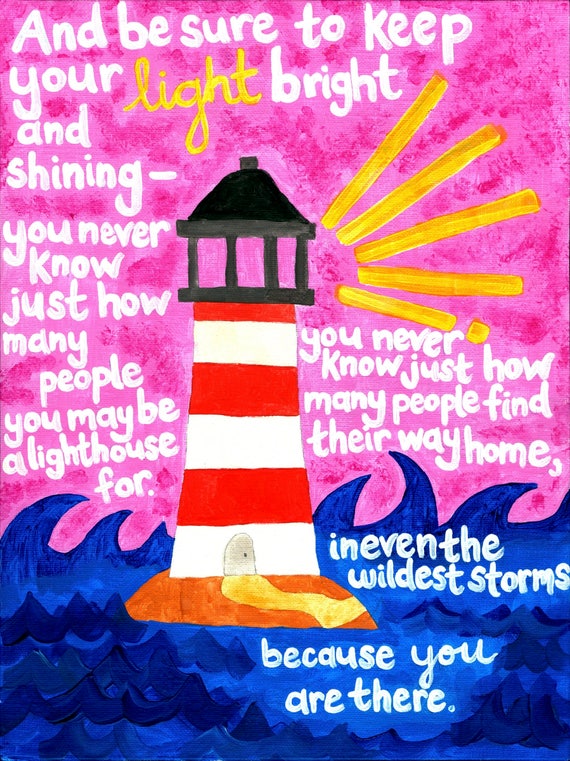 And be sure to keep
your light bright
and
shining—
you never
know
just how
many
people
you may be
a lighthouse
for.
you never
know just how
many people find
their way home,
in even the
wildest storms
because you
are there.